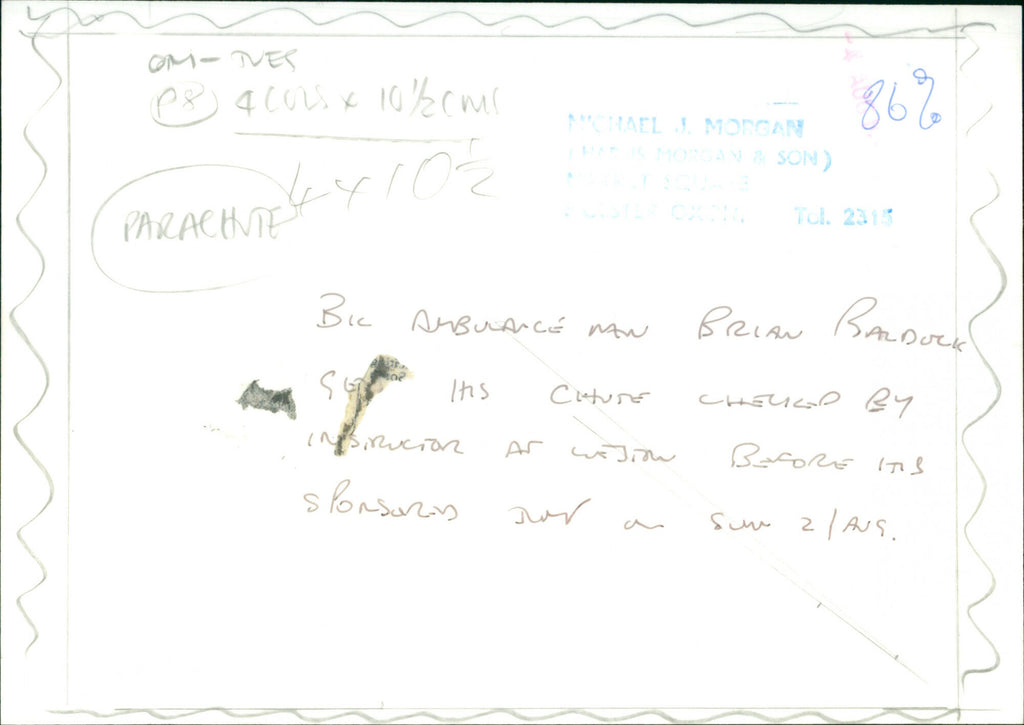 OM - TUES
P8 4 COLS x 10 1/2 CMS
4 x 10 1/2
PARACHUTE
86%
MICHAEL J. MORGAN
(HARRIS MORGAN & SON)
MARKET SQUARE
BICESTER OXON. Tel. 2315
BIC AMBULANCE MAN BRIAN BALDOCK
HIS CHUTE CHECKED BY
INSTRUCTOR AT WESTON BEFORE HIS
SPONSORED JUMP ON SUN 2/AUG.